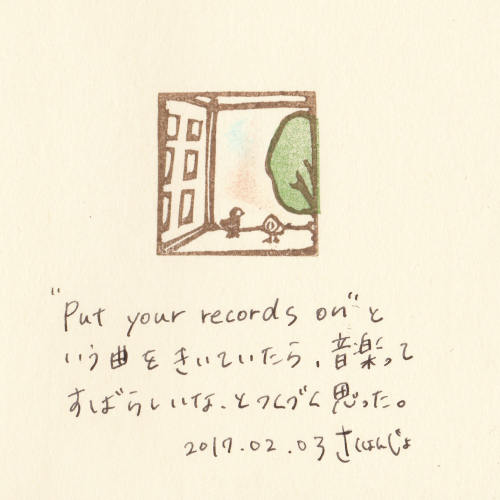 "Put your records on"と
いう曲をきいていたら、音楽って
すばらしいな、とつくづく思った。
2017.02.03 さくはんじょ